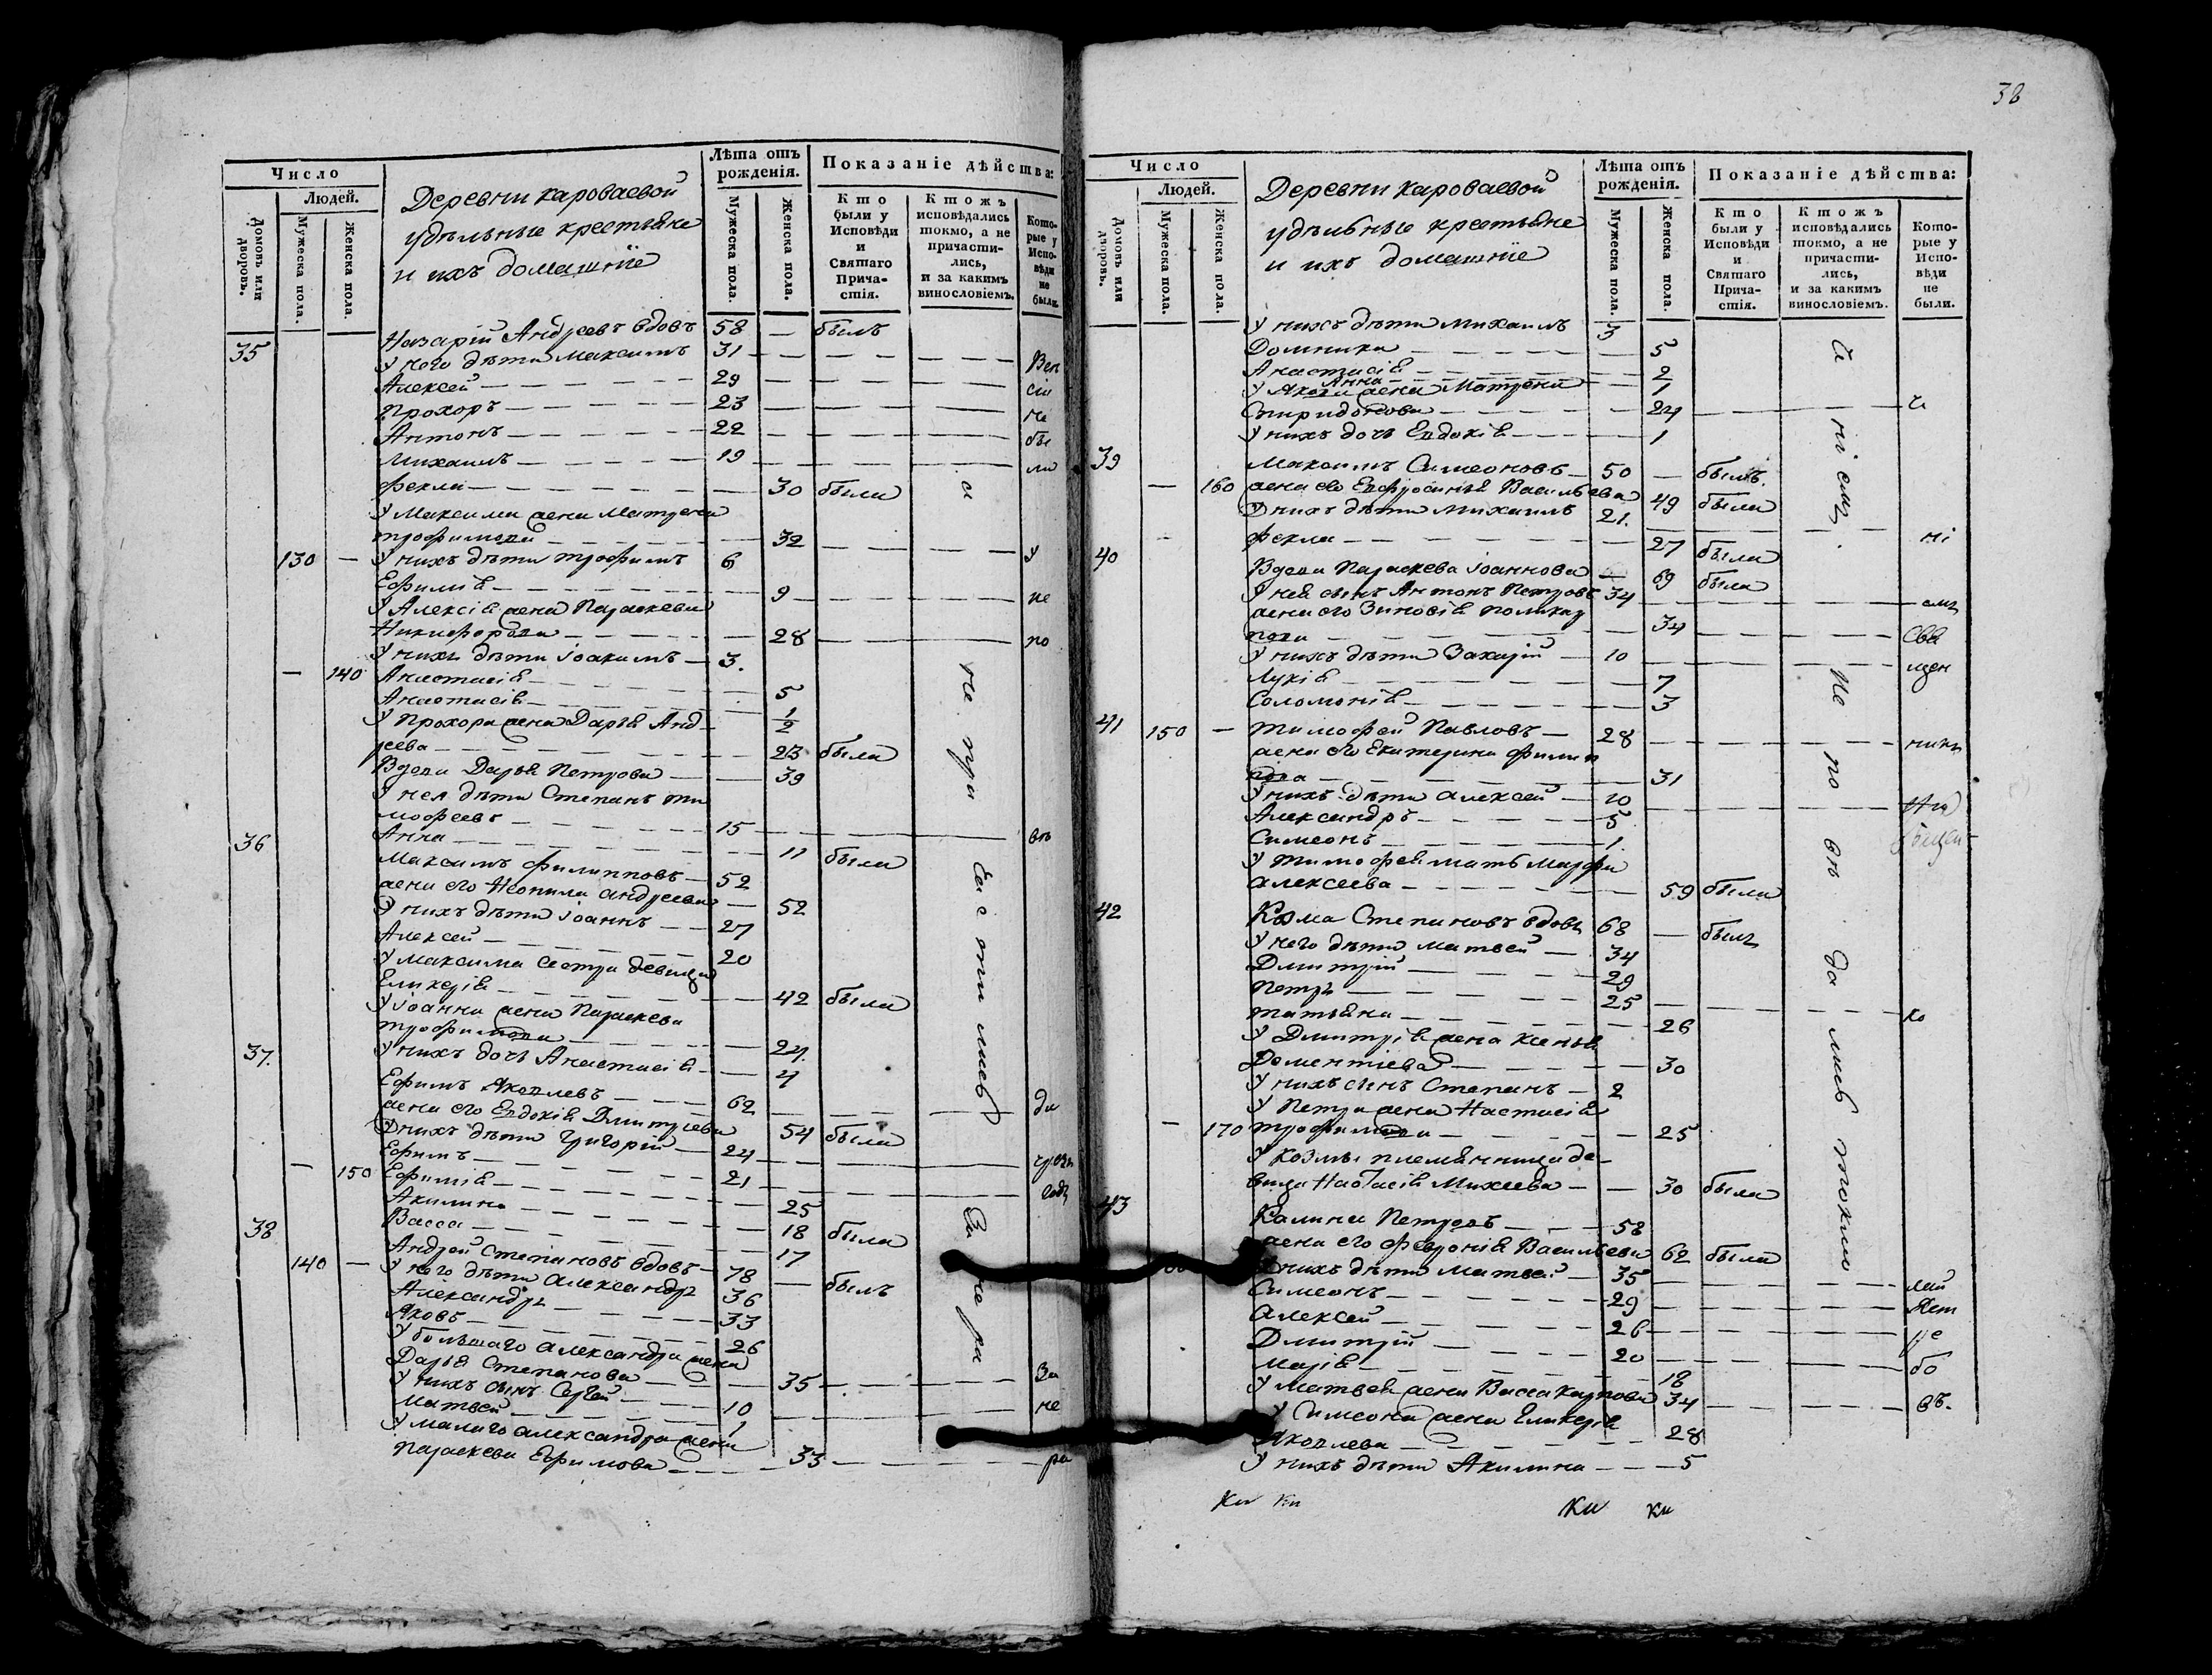 Число
Людей.
Домовъ или дворовъ.
Мужеска пола.
Женска пола.
Деревни кароваевой
удѣльные крестьяне
и ихъ домашніе
Лѣта отъ рожденія.
Мужеска пола.
Женска пола.
Показаніе дѣйства:
Кто были у Исповѣди и Святаго Прича-стія.
Ктожъ исповѣдались токмо, а не причасти-лись, и за какимъ винословіемъ.
Кото-рые у Испо-вѣди не были.
Назарій Андреевъ вдовъ 58 — былъ
35 У него дѣти Максимъ 31
Алексей 29
Прохоръ 23
Антонъ 22
Михаилъ 19
Фекла 30 была
У Максима жена Матрена
трофимова 32
130 — У нихъ дѣти трофимъ 6
Ефимія 9
У Алексія жена Параскева
Никифорова 28
У нихъ дѣти Іоакимъ 3.
— 140 Анастасія 5
Анастасія 1/2
У Прохора жена Дарья Анд
реева 23 была
Вдова Дарья Петрова 39
У нея дѣти Степанъ ти
мофеевъ 15
36 Анна 11 была
Максимъ филипповъ 52
жена его Неонила андреева 52
У нихъ дѣти Іоаннъ 27
Алексей 20
У максима сестра девица
Гликерія 42 была
У Іоанна жена Параскева
трофимова 24
37. У нихъ дочь Анастасія 4
Ефимъ Яковлевъ 62
жена его Евдокія Дмитріева 54 была
У нихъ дѣти Григорій 24
Ефимъ 21
— 150 Ефимія 25
Акилина 18 была
38 Васса 17
Андрей Степановъ вдовъ 78 — былъ
140 — У него дѣти Александръ 36
Александръ 33
Яковъ 26
У большаго Александра жена
Дарья Степанова 35
У нихъ сынъ Сергей 10
Матвей 1
У малаго александра жена
Параскева Ефимова 33
и не при частились за не ра
38
Число
Людей.
Домовъ или дворовъ.
Мужеска пола.
Женска пола.
Деревни кароваевой
удѣльные крестьяне
и ихъ домашніе
Лѣта отъ рожденія.
Мужеска пола.
Женска пола.
Показаніе дѣйства:
Кто были у Исповѣди и Святаго Прича-стія.
Ктожъ исповѣдались токмо, а не причасти-лись, и за какимъ винословіемъ.
Кото-рые у Испо-вѣди не были.
У нихъ дѣти Михаилъ 3
Домника 5
Анастасія 2
Анна 1
У Якова жена Матрена
Спиридонова 24
У нихъ дочь Евдокія 1
39 Максимъ Симеоновъ 50 — былъ.
— 160 жена его Евфросинья Васильева 49 была
У нихъ дѣти Михаилъ 21.
Фекла 27 была
40 Вдова Параскева Іоаннова 69 была
У нея сынъ Антонъ Петровъ 34
жена его Зиновія поликар
пова 34
У нихъ дѣти Захарій 10
Лукія 7
Соломонія 3
41 150 — Тимофей Павловъ 28
жена его Екатерина филип
пова 31
У нихъ дѣти алексей 10
Александръ 5
Симеонъ 1.
У тимофея мать Марфа
алексеева 59 была
42 Козма Степановъ вдовъ 68 — былъ
У него дѣти матвей 34
Дмитрій 29
Петръ 25
татьяна 26
У Дмитрія жена Ксенья
Дементіева 30
У нихъ сынъ Степанъ 2
У Петра жена Настасія
— 170 трофимова 25
У козмы племянница де
вица Настасія Михеева 30 была
43 Калина Петровъ 58
жена его Феврония Васильева 62 была
У нихъ дѣти Матвей 35
Симеонъ 29
алексей 26
Дмитрій 20
Марія 18
У матвея жена Васса карпова 34
У Симеона жена Гликерія
Яковлева 28
У нихъ дѣти Акилина 5